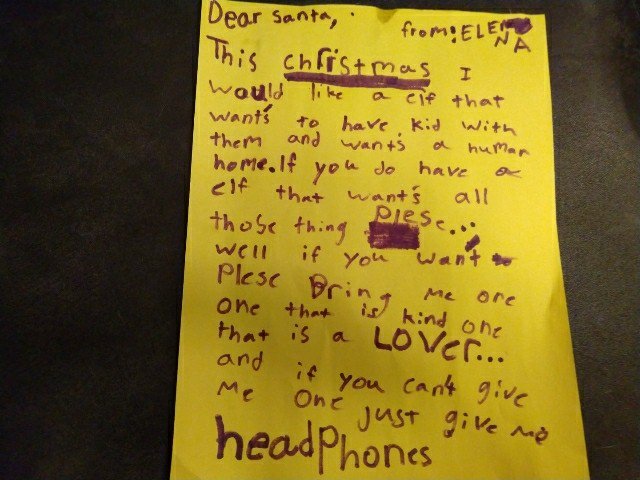 Dear Santa,
from: ELENA
This christmas I
would like a elf that
want's to have kid with
them and wants a human
home. If you do have a
elf that want's all
those thing Plese...
well if you want
Plese Bring me one
one that is kind one
that is a LOVer...
and if you can't give
Me one just give me
headphones